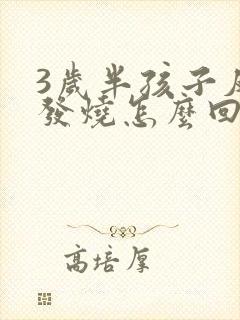 3歲半孩子
發燒怎麼回
高培厚